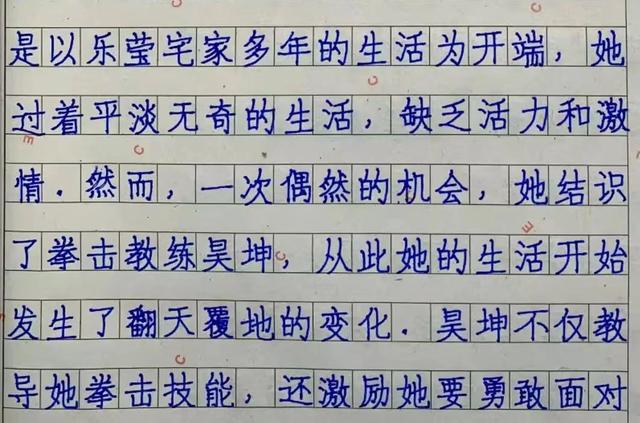 是以乐莹宅家多年的生活为开端，她
过着平淡无奇的生活，缺乏活力和激
情．然而，一次偶然的机会，她结识
了拳击教练昊坤，从此她的生活开始
发生了翻天覆地的变化．昊坤不仅教
导她拳击技能，还激励她要勇敢面对